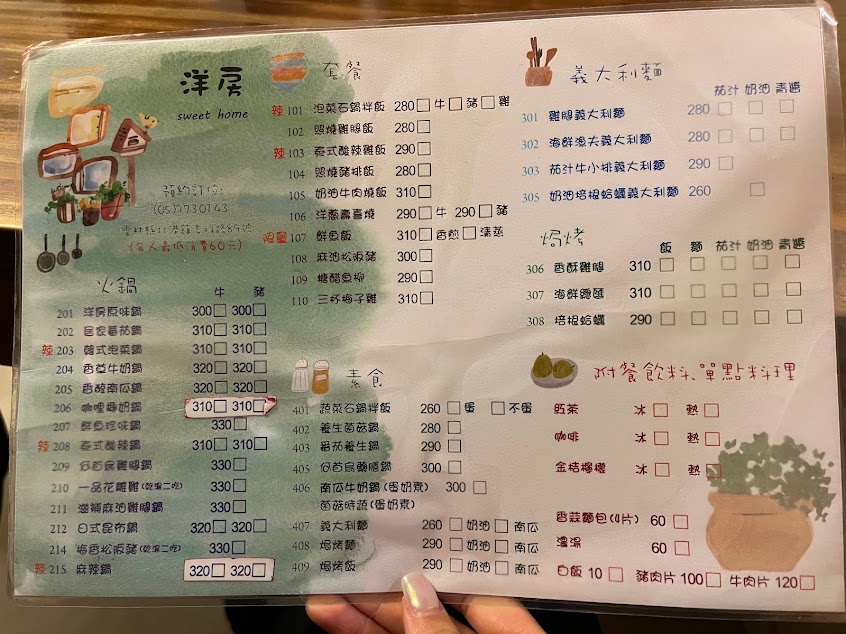 洋房
sweet home
預約訂位:
(05)7730143
(每人最低消費60元)
套餐
辣 101 泡菜石鍋拌飯 280□牛□豬□雞
102 照燒雞腿飯 280□
辣 103 泰式酸辣雞飯 290□
104 照燒豬排飯 280□
105 奶油牛肉燒飯 310□
106 洋蔥壽喜燒 290□牛 290□豬
限量 107 鮮魚飯 310□香煎□清蒸
108 麻油松阪豬 300□
109 糖醋魚柳 290□
110 三杯梅子雞 310□
火鍋
牛 豬
201 洋房原味鍋 300□ 300□
202 居家蕃茄鍋 310□ 310□
辣 203 韓式泡菜鍋 310□ 310□
204 香草牛奶鍋 320□ 320□
205 香酸南瓜鍋 320□ 320□
206 咖哩椰奶鍋 310□ 310□
207 鮮魚珍味鍋 330□
辣 208 泰式酸辣鍋 310□ 310□
209 何首烏雞腿鍋 330□
210 一品花雕雞(乾溼二吃) 330□
211 滋補麻油雞腿鍋 330□
212 日式昆布鍋 320□ 320□
214 梅香松阪豬(乾溼二吃) 330□
辣 215 麻辣鍋 320□ 320□
素食
401 蔬菜石鍋拌飯 260□蛋 □不蛋
402 養生菌菇鍋 280□
403 番茄養生鍋 290□
405 何首烏藥膳鍋 300□
406 南瓜牛奶鍋(蛋奶素) 300□
菌菇時蔬(蛋奶素)
407 義大利麵 260□奶油□南瓜
408 焗烤麵 290□奶油□南瓜
409 焗烤飯 290□奶油□南瓜
義大利麵
茄汁 奶油 青醬
301 雞腿義大利麵 280□ □ □
302 海鮮漁夫義大利麵 280□ □ □
303 茄汁牛小排義大利麵 290□
305 奶油培根蛤蠣義大利麵 260 □
焗烤
飯 麵 茄汁 奶油 青醬
306 香酥雞腿 310□ □ □ □ □
307 海鮮總匯 310□ □ □ □ □
308 培根蛤蠣 290□ □ □ □ □
附餐飲料、單點料理
紅茶 冰□ 熱□
咖啡 冰□ 熱□
金桔檸檬 冰□ 熱□
香蒜麵包(4片) 60□
濃湯 60□
白飯 10□ 豬肉片 100□ 牛肉片 120□